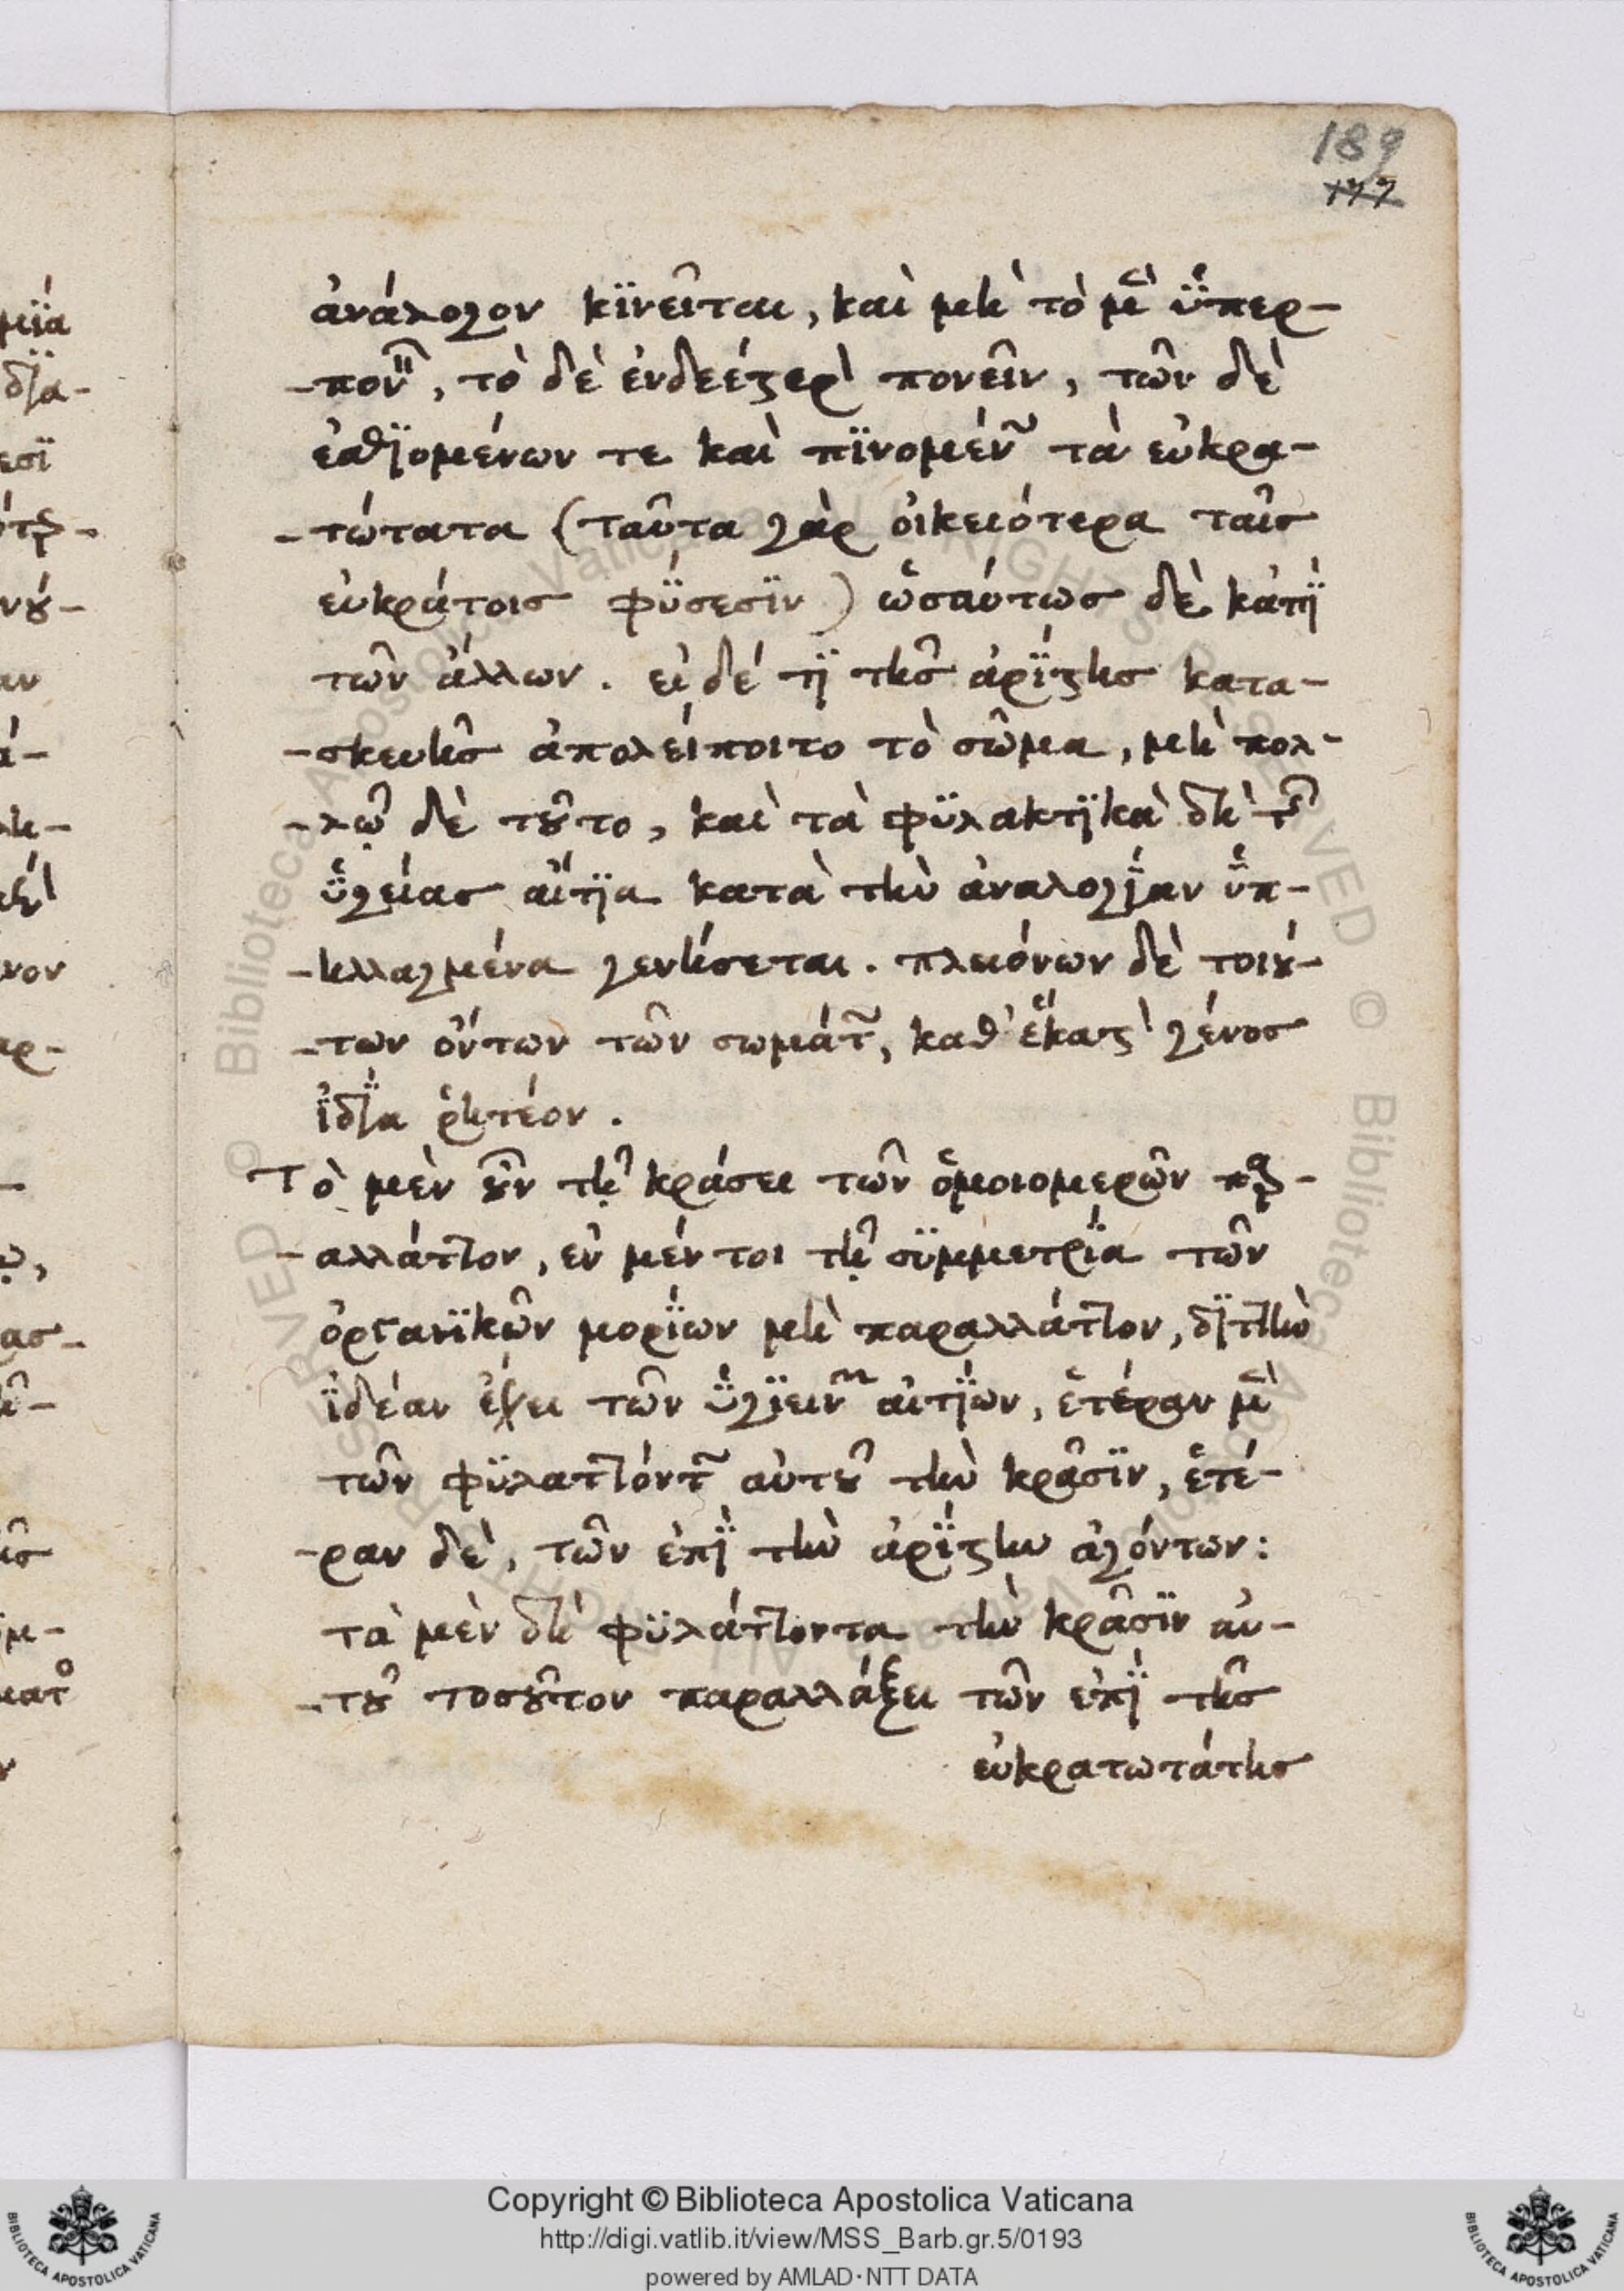 189
177
ἀνάλογον κϊνεῖται, καὶ μὴ τὸ μὲν ὕπερ-
-πον, τὸ δὲ ἐνδεέστερ πονεῖν, τῶν δὲ
ἐσθϊομένων τε καὶ πϊνομέν τὰ εὐκρα-
-τώτατα (ταῦτα γὰρ οἰκειότερα ταῖς
εὐκράτοις φύσεσϊν) ὡσαύτως δὲ κἀπῒ
τῶν ἄλλων. εἰ δέ τϊ τῆς ἀρίστης κατα-
-σκευῆς ἀπολείποιτο τὸ σῶμα, μὴ πολ-
-λῷ δὲ τοῦτο, καὶ τὰ φϋλακτϊκὰ δὴ τ
ὑγείας αἴτϊα κατὰ τὴν ἀναλογίαν ὑπ-
-ηλλαγμένα γενήσεται. πλειόνων δὲ τοιού-
-των ὄντων τῶν σωμάτ, καθ' ἕκαστ γένος
ἰδία ῥητέον.
Τὸ μὲν οὖν τῇ κράσει τῶν ὁμοιομερῶν παρ-
-αλλάττον, ἐν μέν τοι τῇ σϋμμετρία τῶν
ὀργανϊκῶν μορίων μὴ παραλλάττον, διττὴν
ἰδέαν ἔχει τῶν ὑγϊειν αἰτίων, ἑτέραν μὲν
τῶν φϋλαττόντ αὐτοῦ τὴν κρᾶσϊν, ἑτέ-
-ραν δὲ, τῶν ἐπῒ τὴν ἀρίστην ἀγόντων:
τὰ μὲν δὴ φϋλάττοντα τὴν κρᾶσϊν αὐ-
-τοῦ τοσοῦτον παραλλάξει τῶν ἐπῒ τῆς
εὐκρατωτάτης
μϊά
δϊα-
εσϊ
νού-
αν
ά-
νον
αρ-
ας-
Copyright © Biblioteca Apostolica Vaticana
http://digi.vatlib.it/view/MSS_Barb.gr.5/0193
powered by AMLAD·NTT DATA
BIBLIOTECA APOSTOLICA VATICANA
BIBLIOTECA APOSTOLICA VATICANA